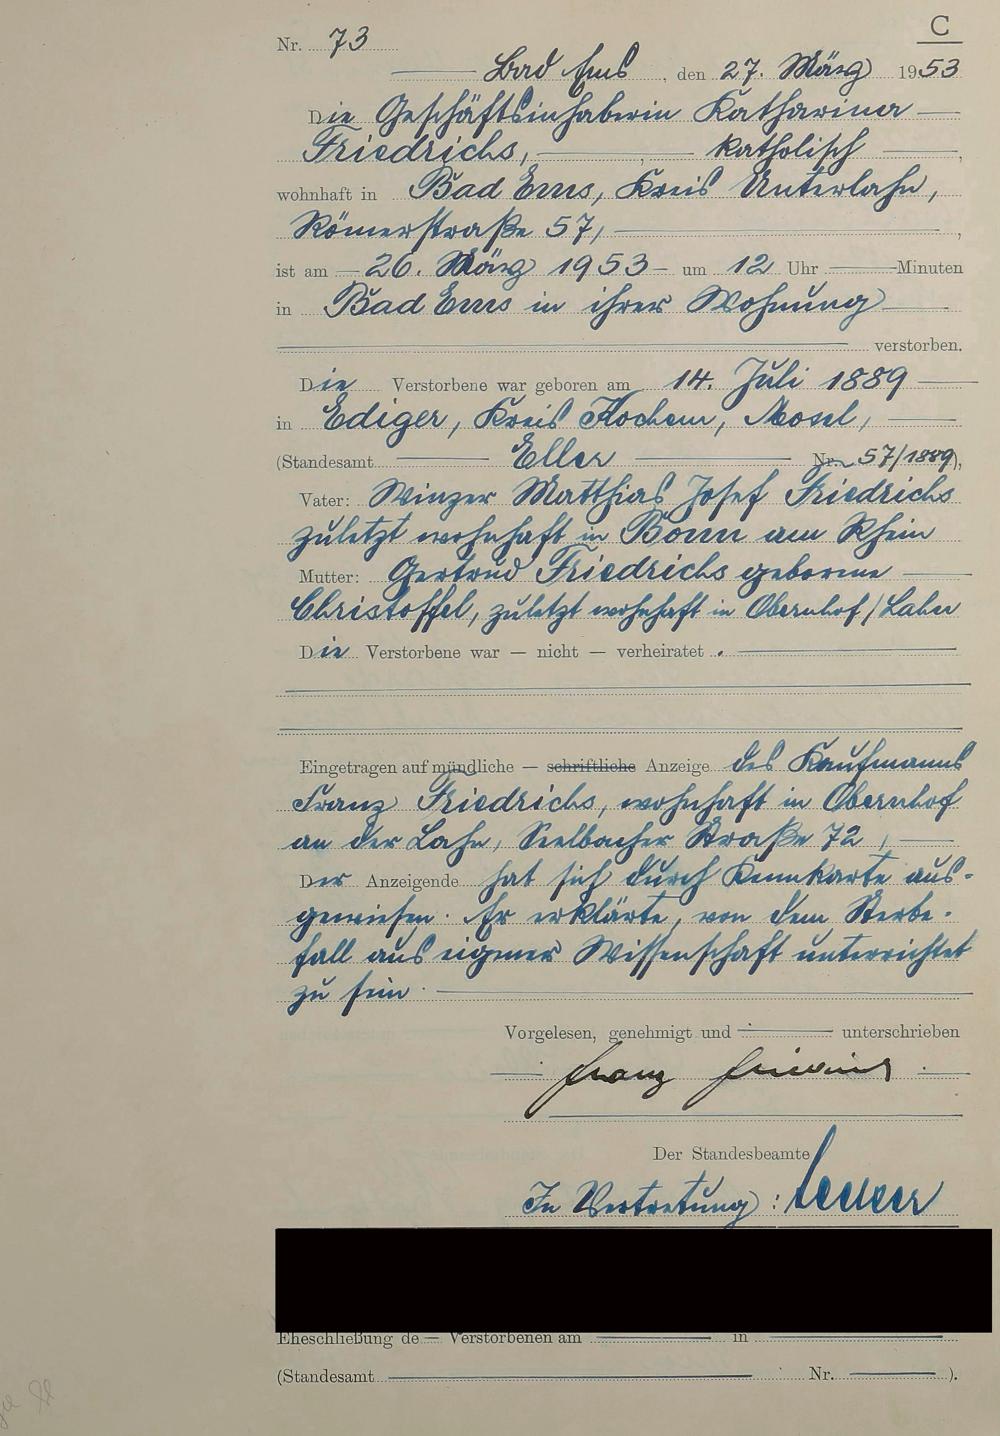 C
Nr. 73
Bad Ems, den 27. März 1953
Die Geschäftsinhaberin Katharina
Friedrichs, katholisch,
wohnhaft in Bad Ems, Kreis Unterlahn,
Römerstraße 57,
ist am 26. März 1953 um 12 Uhr Minuten
in Bad Ems in ihrer Wohnung
verstorben.
Die Verstorbene war geboren am 14. Juli 1889
in Ediger, Kreis Kochem, Mosel,
(Standesamt Eller Nr. 57/1889),
Vater: Winzer Matthias Josef Friedrichs
zuletzt wohnhaft in Bonn am Rhein
Mutter: Gertrud Friedrichs geborene
Christoffel, zuletzt wohnhaft in Obernhof/Lahn
Die Verstorbene war – nicht – verheiratet.
Eingetragen auf mündliche – schriftliche Anzeige des Kaufmanns
Franz Friedrichs, wohnhaft in Obernhof
an der Lahn, Seelbacher Straße 72,
Der Anzeigende hat sich durch Kennkarte aus-
gewiesen. Er erklärte, von dem Sterbe-
fall aus eigener Wissenschaft unterrichtet
zu sein.
Vorgelesen, genehmigt und unterschrieben
Franz Friedrichs
Der Standesbeamte
In Vertretung:
Eheschließung de Verstorbenen am in
(Standesamt Nr. ).